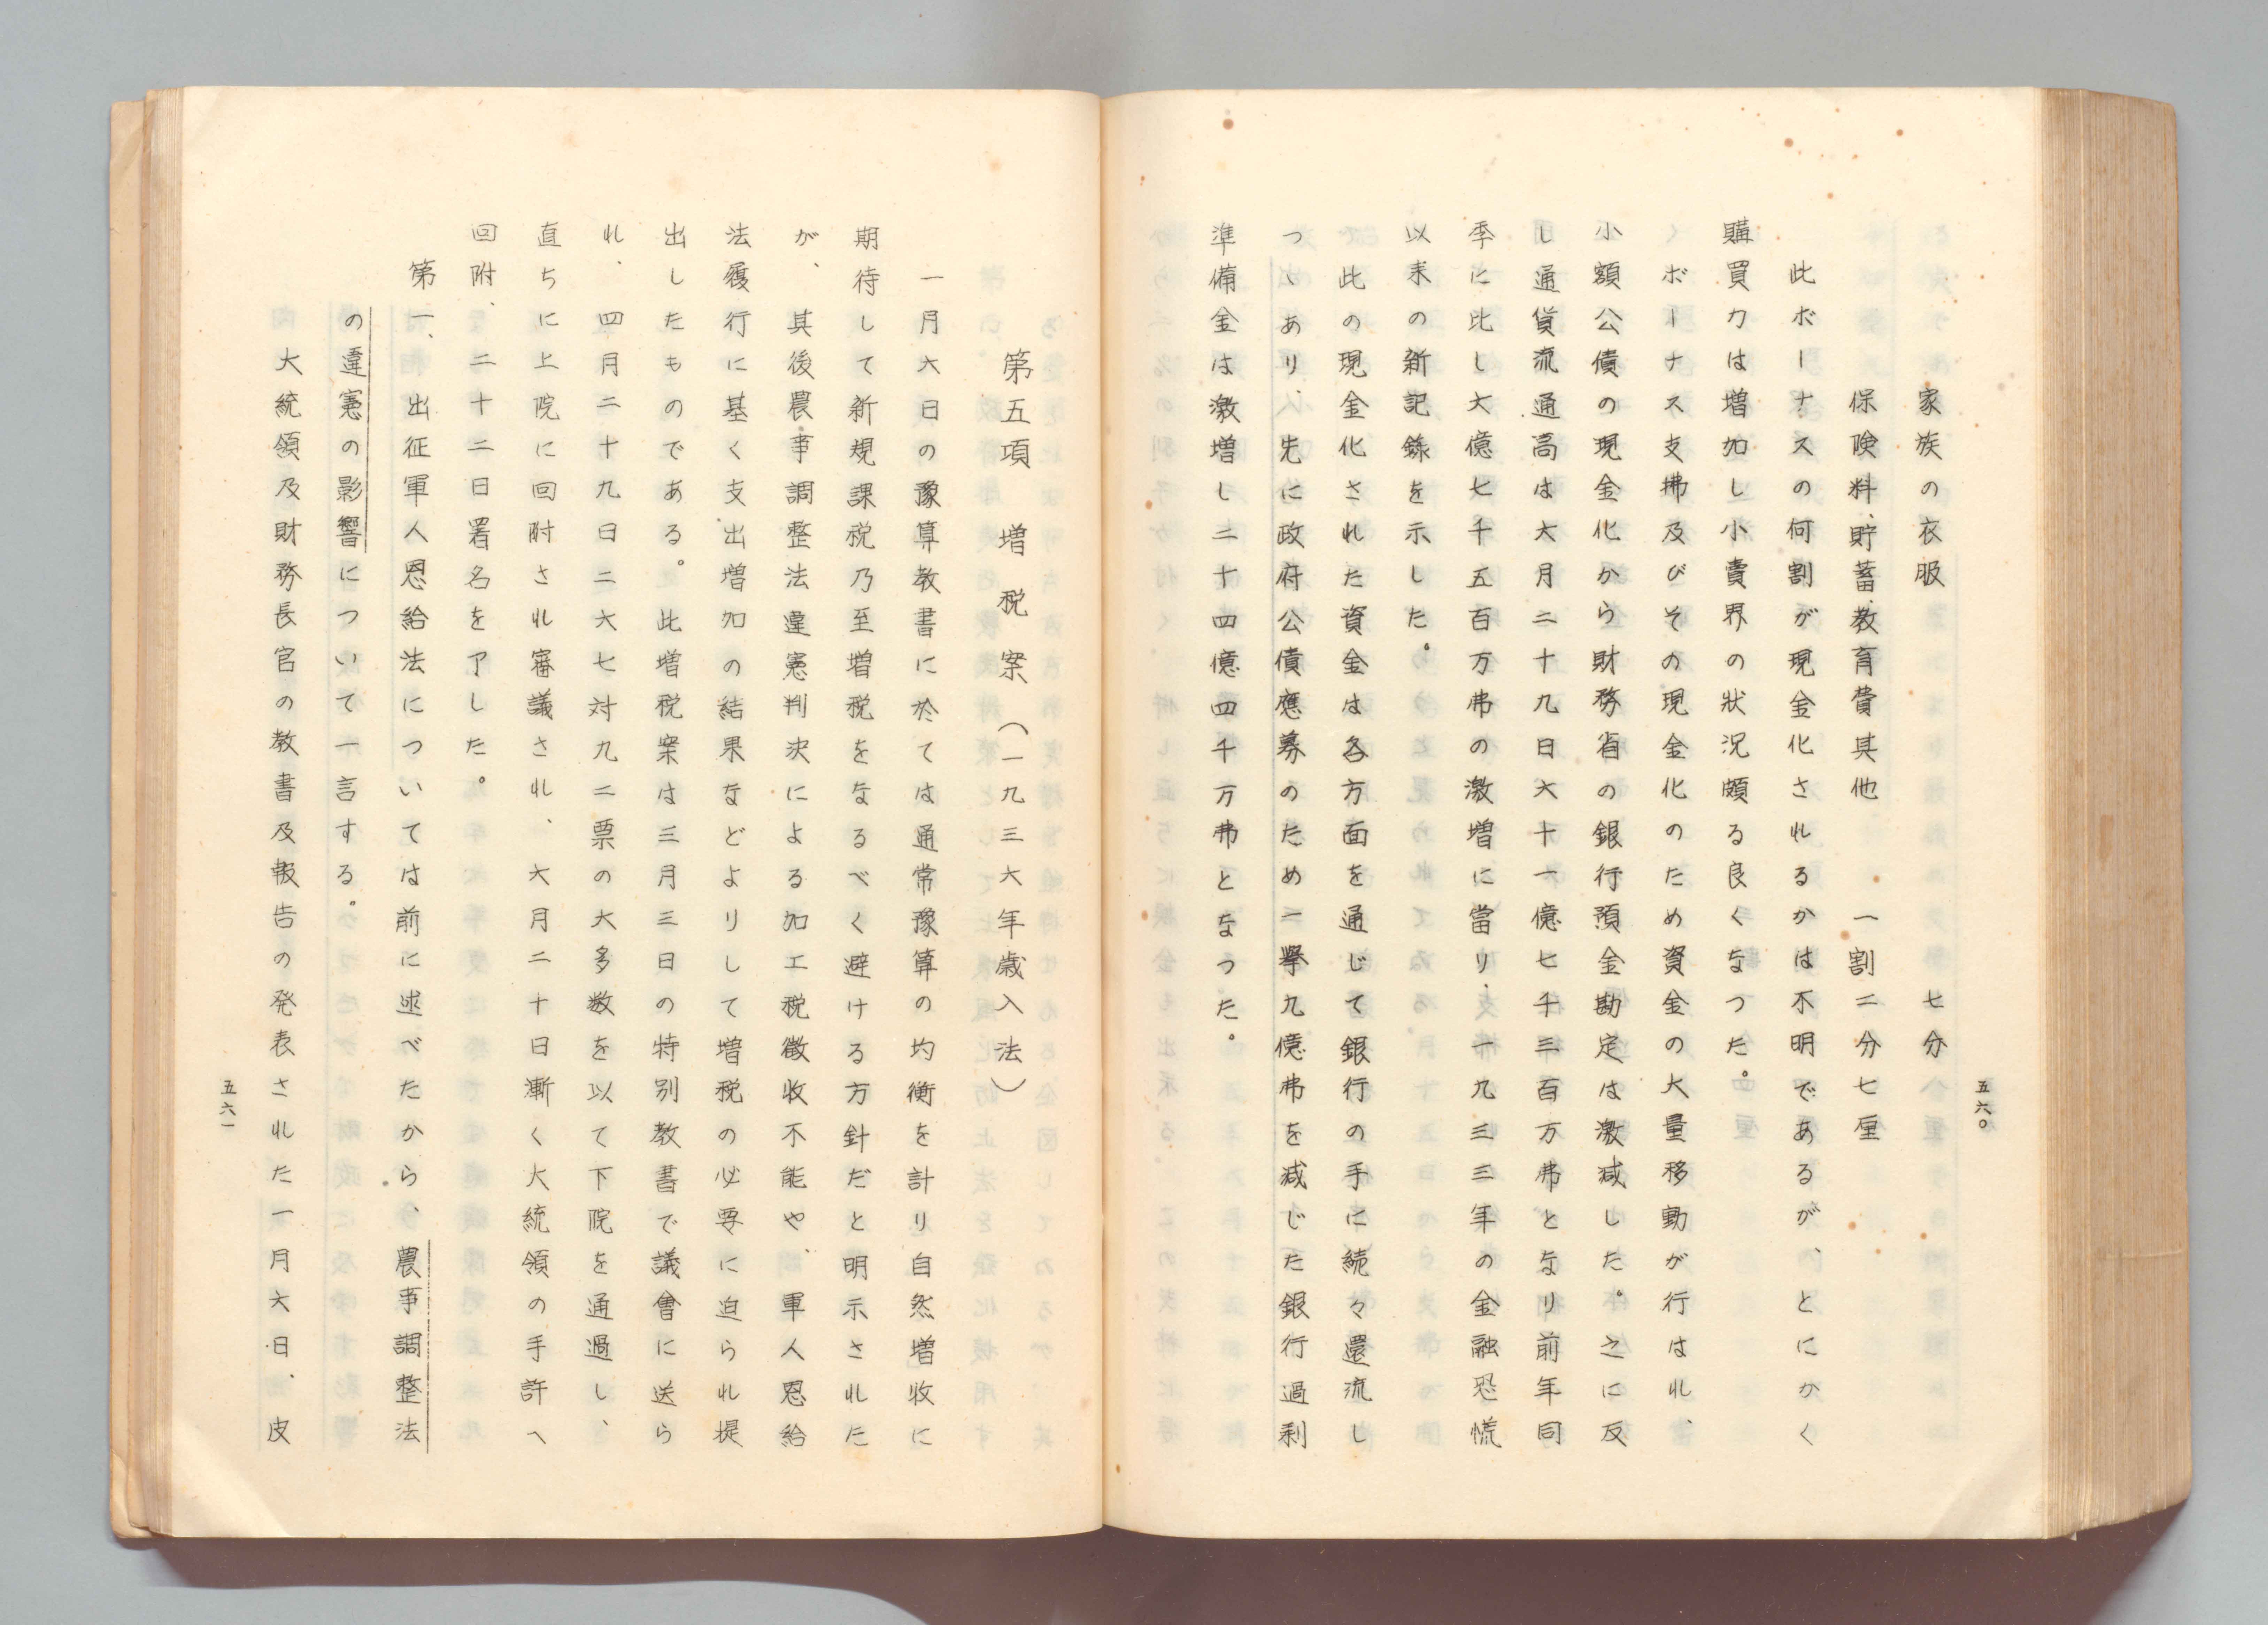 五六〇
家族の衣服 七分
保険料、貯蓄、教育費其他 一割二分七厘
此ボーナスの何割が現金化されるかは不明であるが、とにかく
購買力は増加し小賣界の狀況頗る良くなつた。
ボーナス支拂及びその現金化のため資金の大量移動が行はれ、
小額公債の現金化から財務省の銀行預金勘定は激減した。之に反
し通貨流通高は六月二十九日六十一億七千三百万弗となり前年同
季に比し六億七千五百万弗の激増に當り、一九三三年の金融恐慌
以来の新記錄を示した。
此の現金化された資金は各方面を通じて銀行の手に続々還流し
つゝあり、先に政府公債應募のため一擧九億弗を減じた銀行過剰
準備金は激増し二十四億四千万弗となつた。
第五項 増税案（一九三六年歳入法）
一月六日の豫算教書に於ては通常豫算の均衡を計り自然増收に
期待して新規課税乃至増税をなるべく避ける方針だと明示された
が、其後農事調整法違憲判決による加工税徴收不能や、軍人恩給
法履行に基く支出増加の結果などよりして増税の必要に迫られ提
出したものである。此増税案は三月三日の特別教書で議會に送ら
れ、四月二十九日二六七対九二票の大多数を以て下院を通過し、
直ちに上院に回附され審議され、六月二十日漸く大統領の手許へ
回附、二十二日署名を了した。
第一、出征軍人恩給法については前に述べたから、農事調整法
の違憲の影響について一言する。
大統領及財務長官の教書及報告の発表された一月六日、皮
五六一